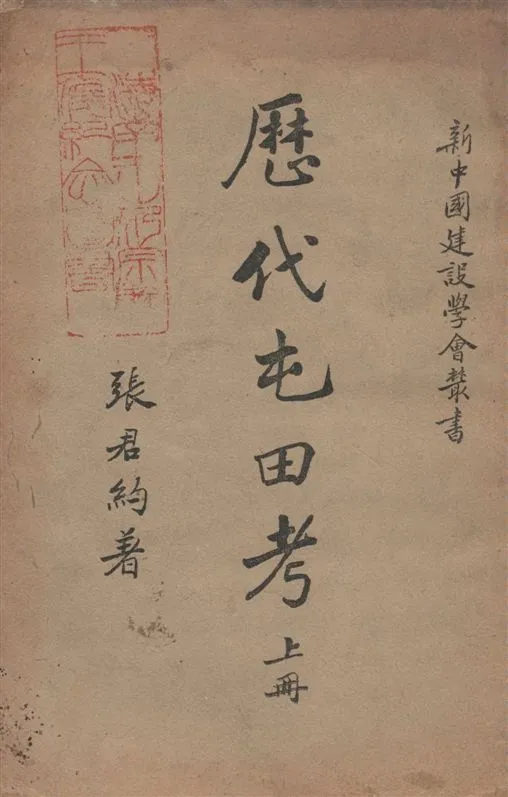 新中國建設學會叢書
歷代屯田考 上冊
張君約著